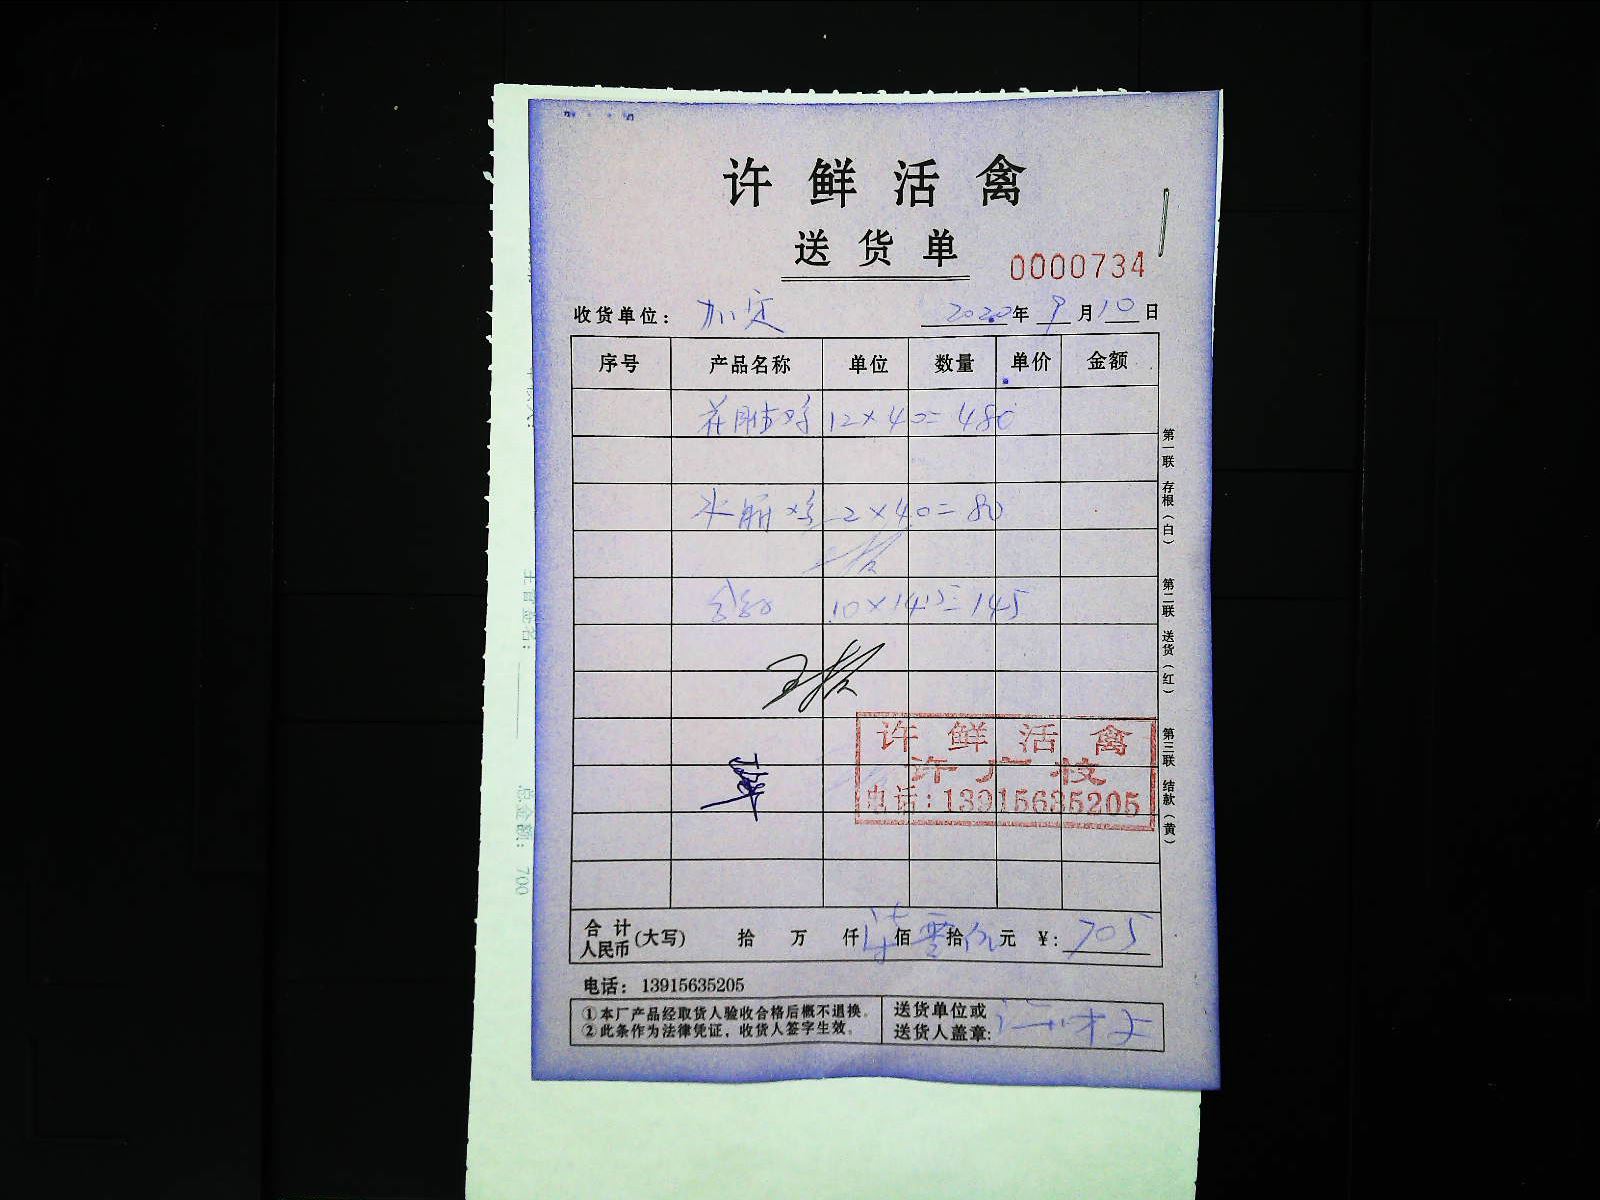 许鲜活禽
送货单
0000734
收货单位： 加定 2020年 9月10日
序号 产品名称 单位 数量 单价 金额
12×40=480
2×40=80
10×14.5=145
许鲜活禽
许广枝
电话：13915635205
合计人民币(大写) 拾 万 仟 柒佰 零拾 伍元 ¥：705
电话：13915635205
①本厂产品经取货人验收合格后概不退换。
②此条作为法律凭证，收货人签字生效。
送货单位或
送货人盖章：
第一联 存根（白） 第二联 送货（红） 第三联 结款（黄）
主管签名：
总金额：700